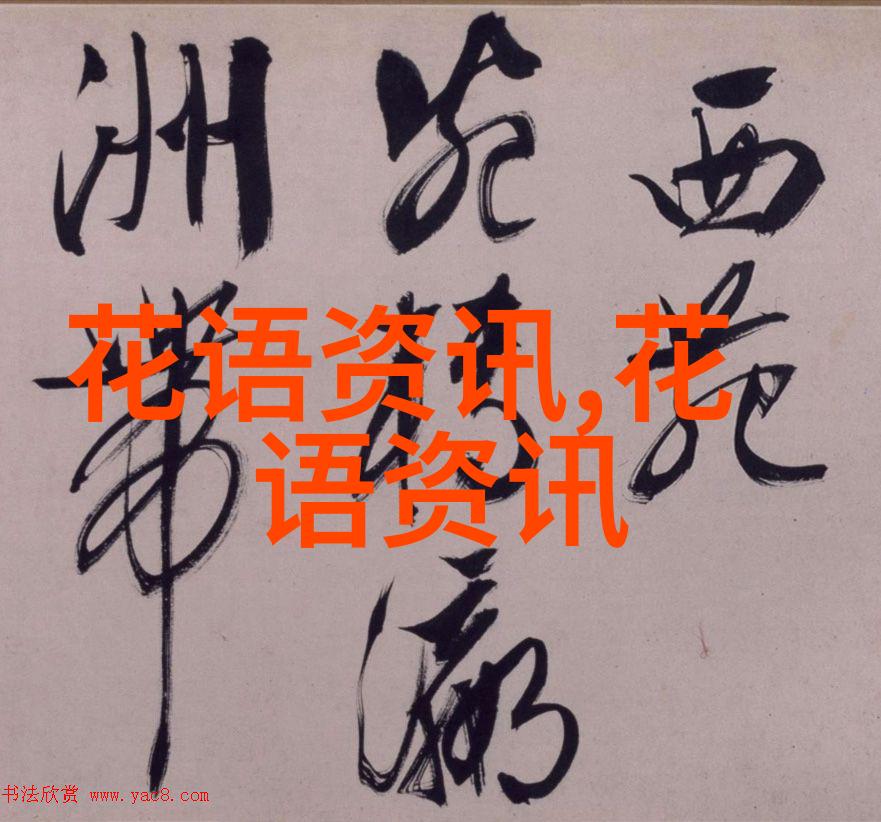 西苑
瀛
洲带
花语资讯,花
语资讯
书法欣赏 www.yac8.com